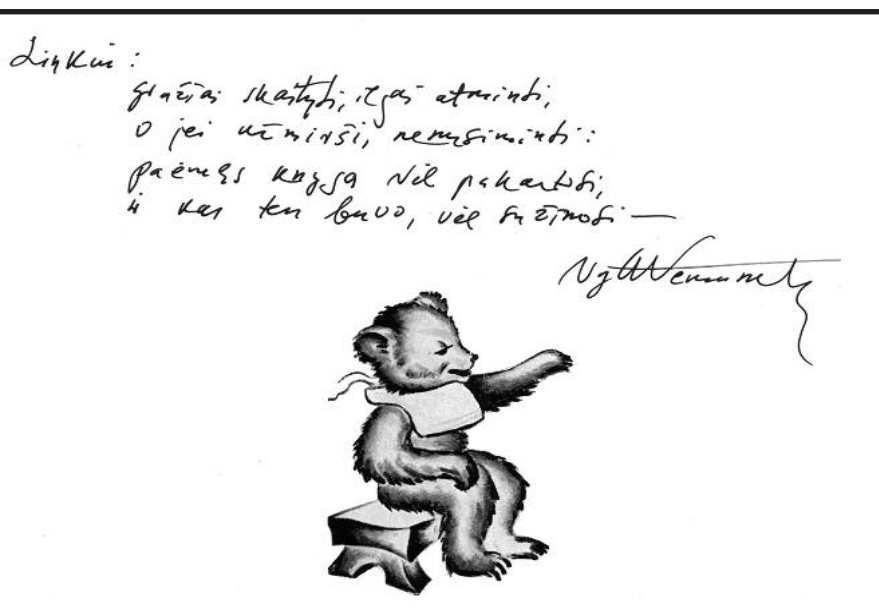 Linkiu:
gražiai skaityti, ilgai atminti,
o jei užmirši, nenusiminti:
paėmęs knygą vėl pakartosi,
ir kas ten buvo, vėl sužinosi —
Vytė Nemunėlis